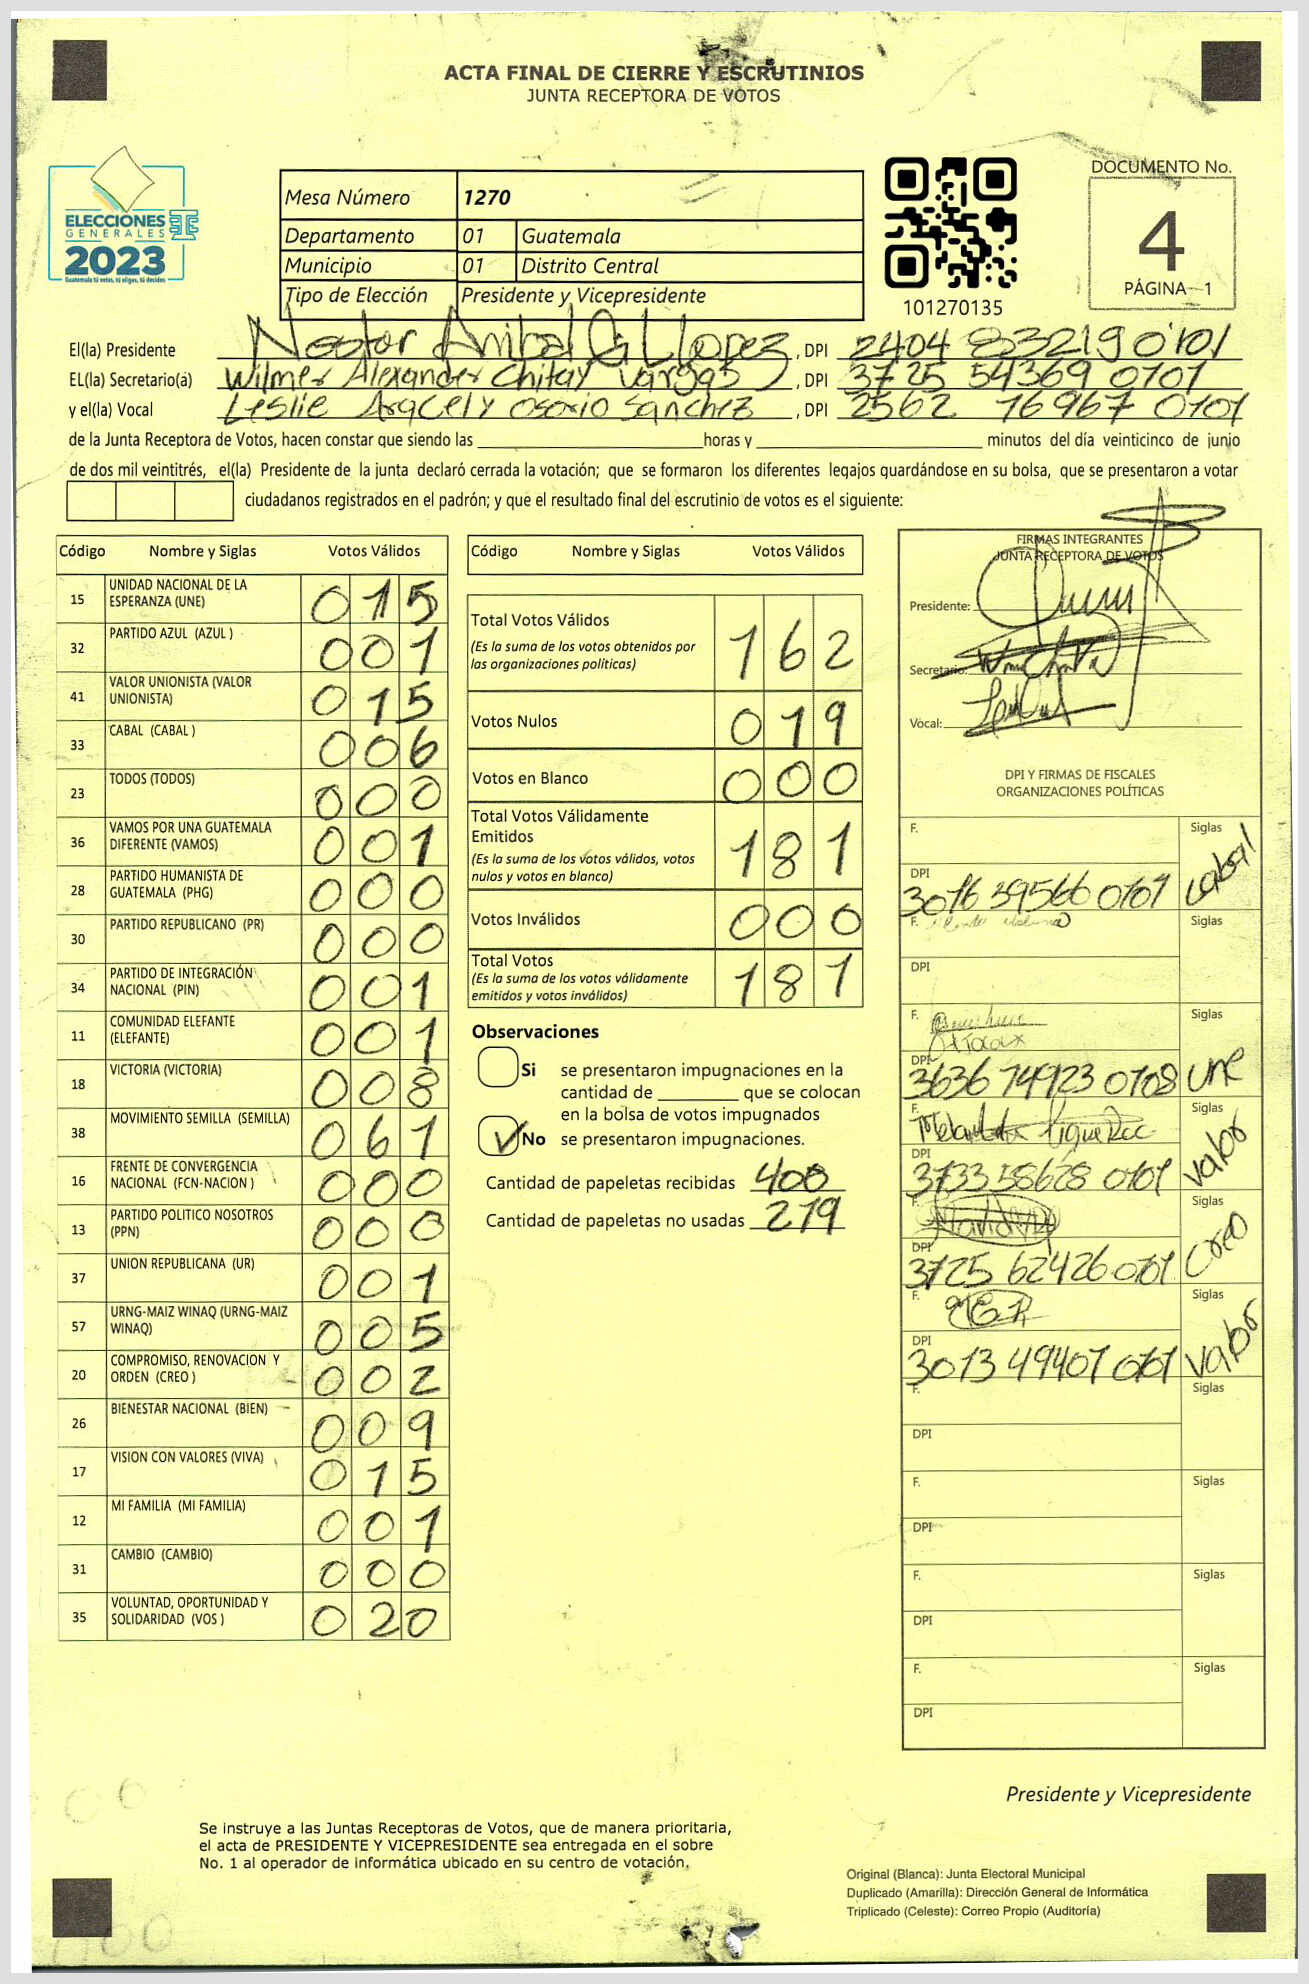 ACTA FINAL DE CIERRE Y ESCRUTINIOS
JUNTA RECEPTORA DE VOTOS
ELECCIONES
GENERALES
2023
Guatemala tú votas, tú eliges, tú decides
Mesa Número 1270
Departamento 01 Guatemala
Municipio 01 Distrito Central
Tipo de Elección Presidente y Vicepresidente
101270135
DOCUMENTO No.
4
PÁGINA 1
El(la) Presidente Nestor Anibal Gil Lopez, DPI 2404 83219 0101
EL(la) Secretario(a) Wilmer Alexander Chitay Vargas, DPI 3725 54369 0101
y el(la) Vocal Leslie Aracely Osorio Sanchez, DPI 2562 76967 0101
de la Junta Receptora de Votos, hacen constar que siendo las horas y minutos del día veinticinco de junio
de dos mil veintitrés, el(la) Presidente de la junta declaró cerrada la votación; que se formaron los diferentes legajos quardándose en su bolsa, que se presentaron a votar
ciudadanos registrados en el padrón; y que el resultado final del escrutinio de votos es el siguiente:
Código Nombre y Siglas Votos Válidos
15 UNIDAD NACIONAL DE LA ESPERANZA (UNE) 015
32 PARTIDO AZUL (AZUL ) 001
41 VALOR UNIONISTA (VALOR UNIONISTA) 015
33 CABAL (CABAL ) 006
23 TODOS (TODOS) 000
36 VAMOS POR UNA GUATEMALA DIFERENTE (VAMOS) 001
28 PARTIDO HUMANISTA DE GUATEMALA (PHG) 000
30 PARTIDO REPUBLICANO (PR) 000
34 PARTIDO DE INTEGRACIÓN NACIONAL (PIN) 001
11 COMUNIDAD ELEFANTE (ELEFANTE) 001
18 VICTORIA (VICTORIA) 008
38 MOVIMIENTO SEMILLA (SEMILLA) 061
16 FRENTE DE CONVERGENCIA NACIONAL (FCN-NACION ) 000
13 PARTIDO POLITICO NOSOTROS (PPN) 000
37 UNION REPUBLICANA (UR) 001
57 URNG-MAIZ WINAQ (URNG-MAIZ WINAQ) 005
20 COMPROMISO, RENOVACION Y ORDEN (CREO ) 002
26 BIENESTAR NACIONAL (BIEN) 009
17 VISION CON VALORES (VIVA) 015
12 MI FAMILIA (MI FAMILIA) 001
31 CAMBIO (CAMBIO) 000
35 VOLUNTAD, OPORTUNIDAD Y SOLIDARIDAD (VOS ) 020
Código Nombre y Siglas Votos Válidos
Total Votos Válidos 162
(Es la suma de los votos obtenidos por
las organizaciones políticas)
Votos Nulos 019
Votos en Blanco 000
Total Votos Válidamente
Emitidos 181
(Es la suma de los votos válidos, votos
nulos y votos en blanco)
Votos Inválidos 000
Total Votos 181
(Es la suma de los votos válidamente
emitidos y votos inválidos)
Observaciones
Si se presentaron impugnaciones en la
cantidad de que se colocan
en la bolsa de votos impugnados
No se presentaron impugnaciones.
Cantidad de papeletas recibidas 400
Cantidad de papeletas no usadas 219
FIRMAS INTEGRANTES
JUNTA RECEPTORA DE VOTOS
Presidente:
Secretario:
Vocal:
DPI Y FIRMAS DE FISCALES
ORGANIZACIONES POLÍTICAS
F. Siglas
DPI 3016 39566 0101 Cabal
F. Siglas
DPI
F. Siglas
DPI 3636 74923 0108 Une
F. Siglas
DPI 3733 58628 0101 Valor
F. Siglas
DPI 3725 62426 0101 Creo
F. Siglas
DPI 3013 49401 0101 Valor
F. Siglas
DPI
F. Siglas
DPI
F. Siglas
DPI
F. Siglas
DPI
Presidente y Vicepresidente
Se instruye a las Juntas Receptoras de Votos, que de manera prioritaria,
el acta de PRESIDENTE Y VICEPRESIDENTE sea entregada en el sobre
No. 1 al operador de informática ubicado en su centro de votación.
Original (Blanca): Junta Electoral Municipal
Duplicado (Amarilla): Dirección General de Informática
Triplicado (Celeste): Correo Propio (Auditoría)